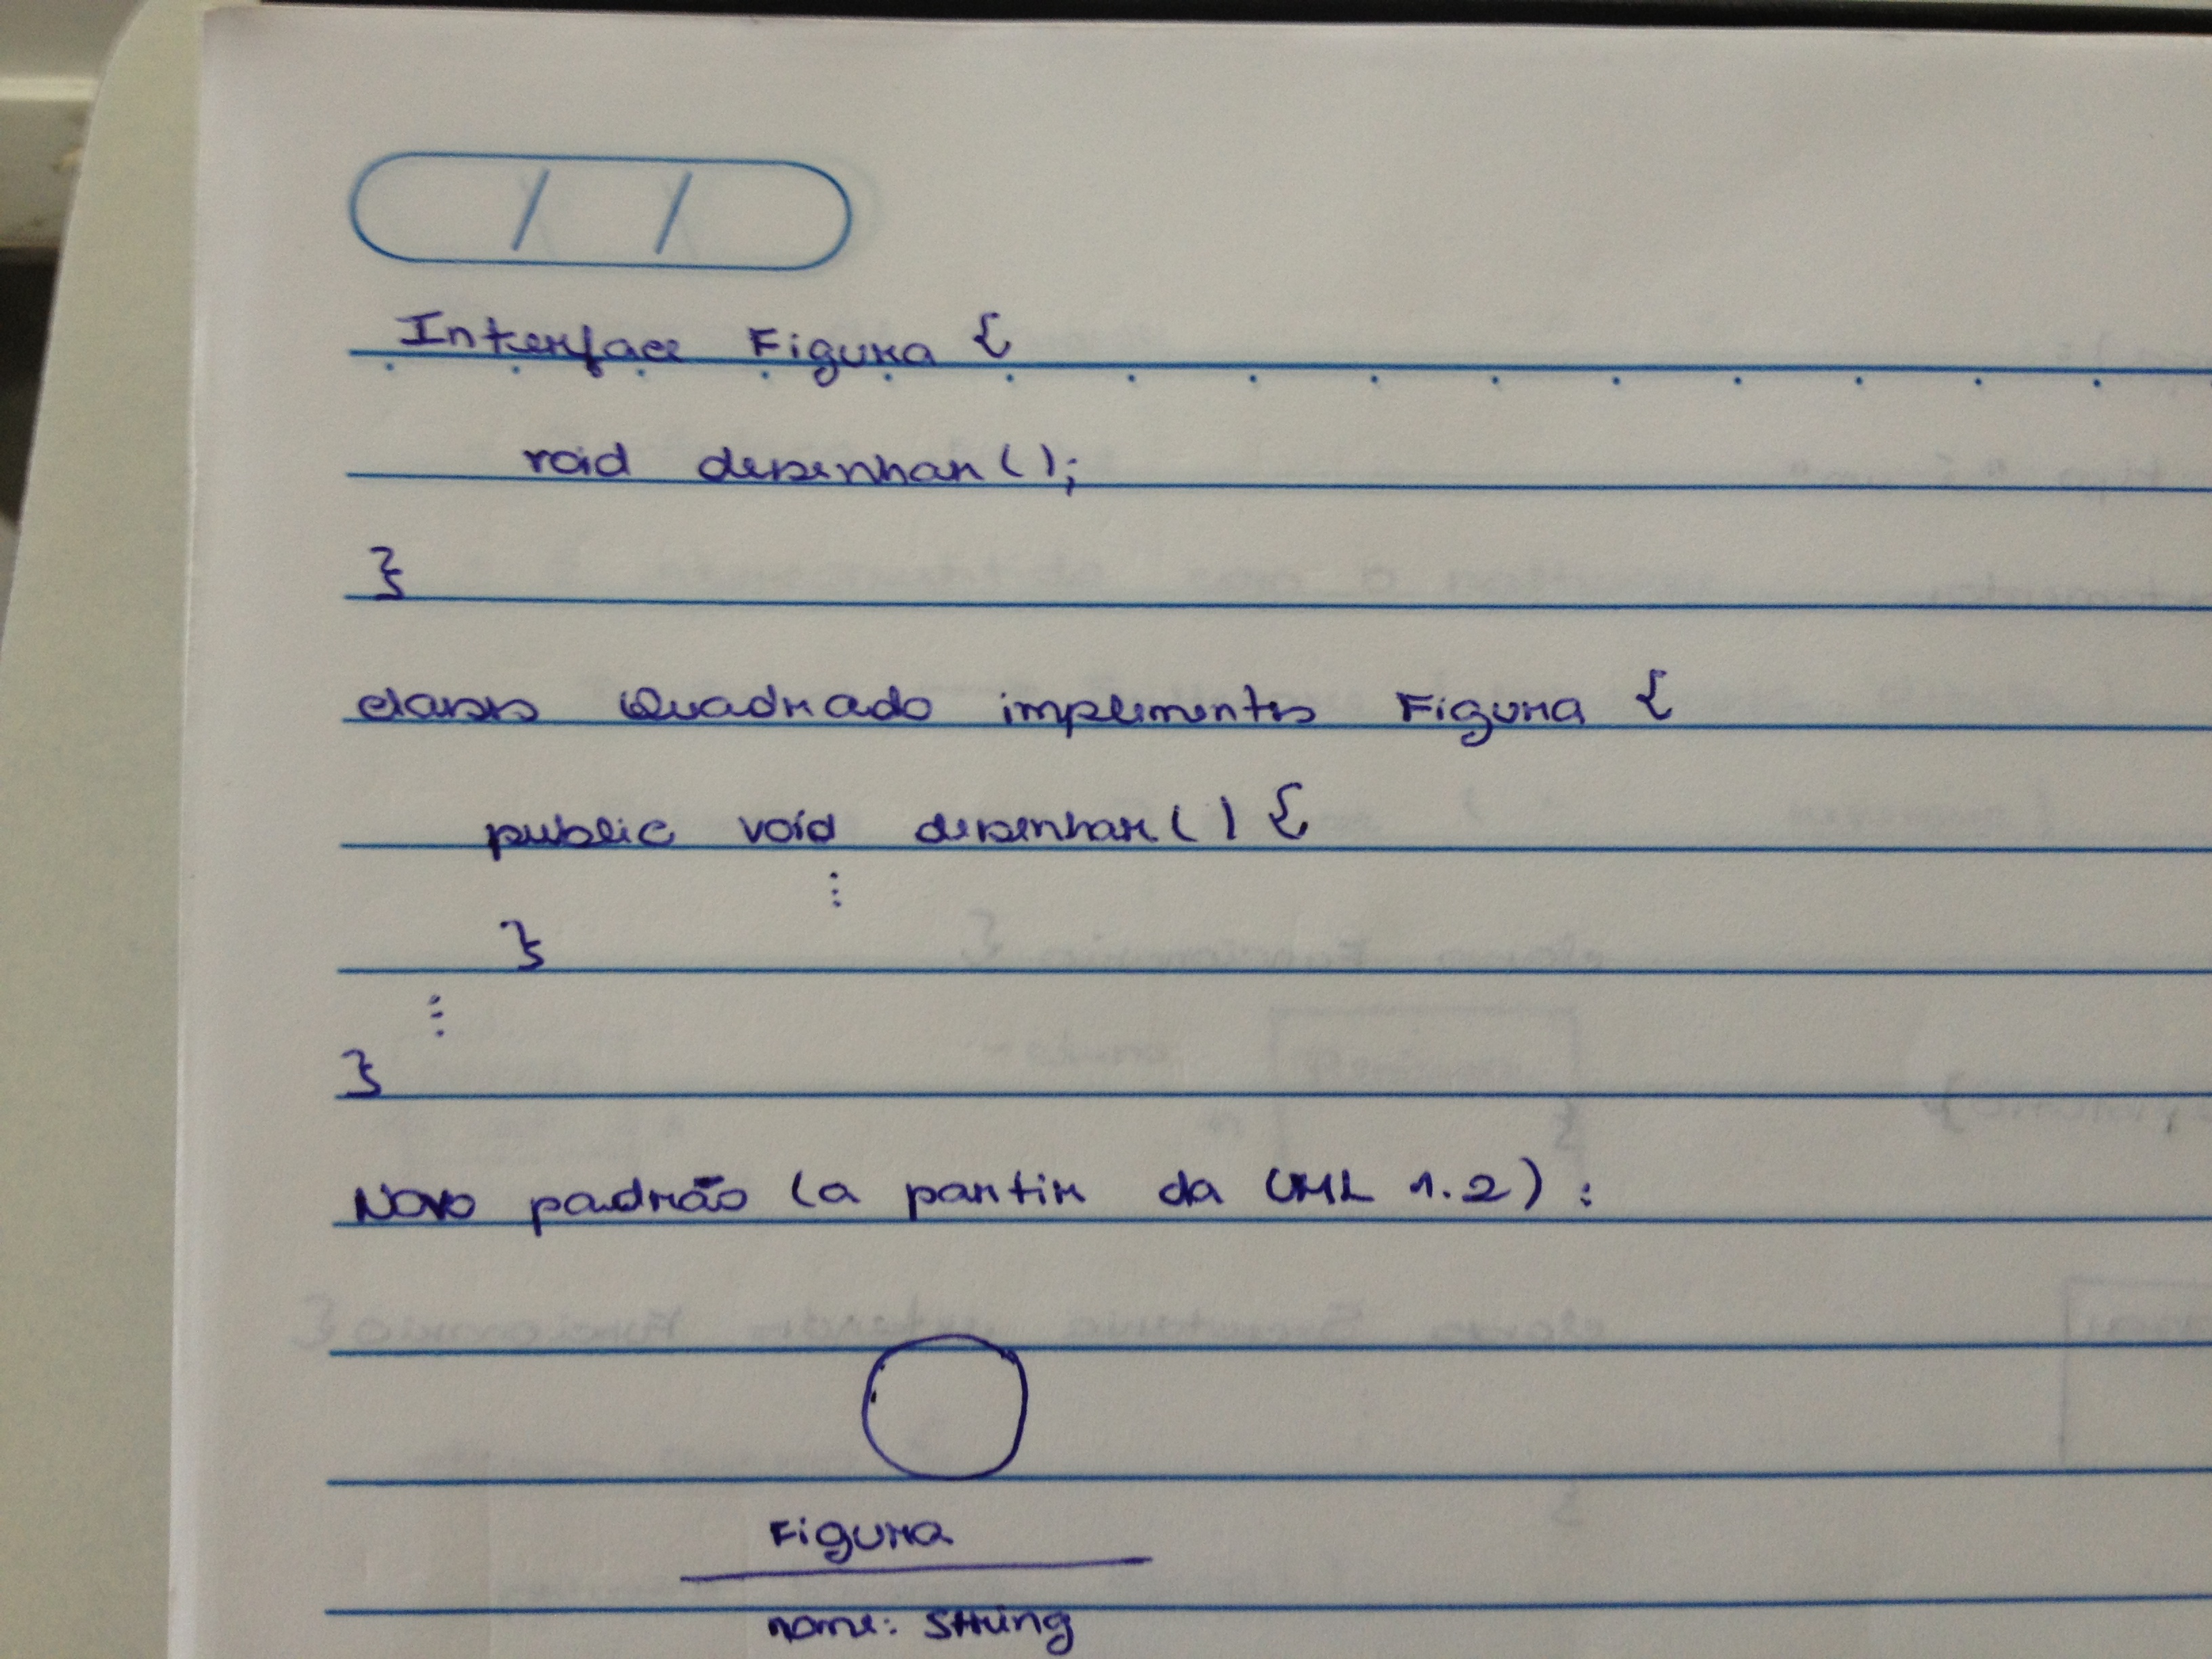 / /
Interface Figura {
void desenhar();
}
class Quadrado implements Figura {
public void desenhar() {
⋮
}
⋮
}
Novo padrão (a partir da UML 1.2) :
Figura
nome: String